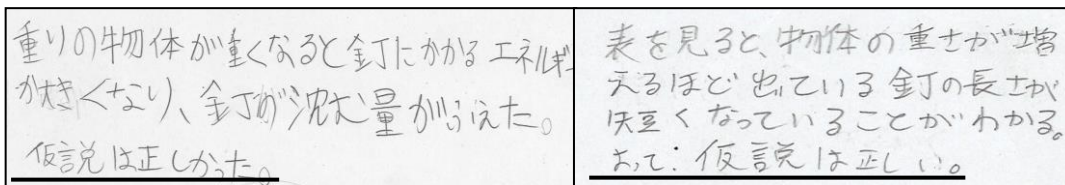 重りの物体が重くなると釘にかかるエネルギー
が大きくなり、釘が沈む量がふえた。
仮説は正しかった。
表を見ると、物体の重さが増
えるほど出ている釘の長さが
短くなっていることがわかる。
よって、仮説は正しい。